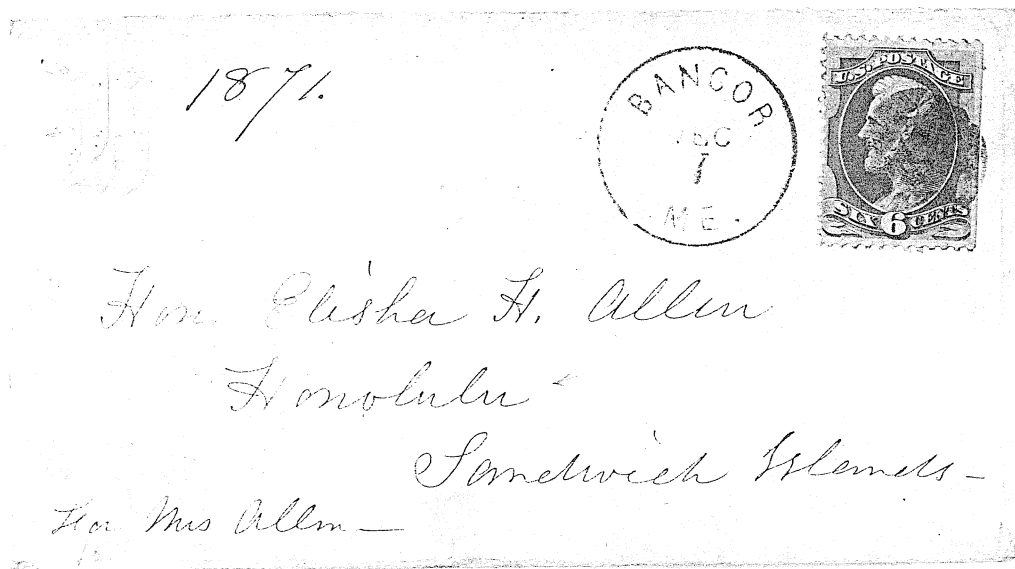 1871.
BANGOR
DEC
7
ME.
U.S. POSTAGE
SIX 6 CENTS
Hon. Elisha H. Allen
Honolulu
Sandwich Islands -
For Mrs Allen -